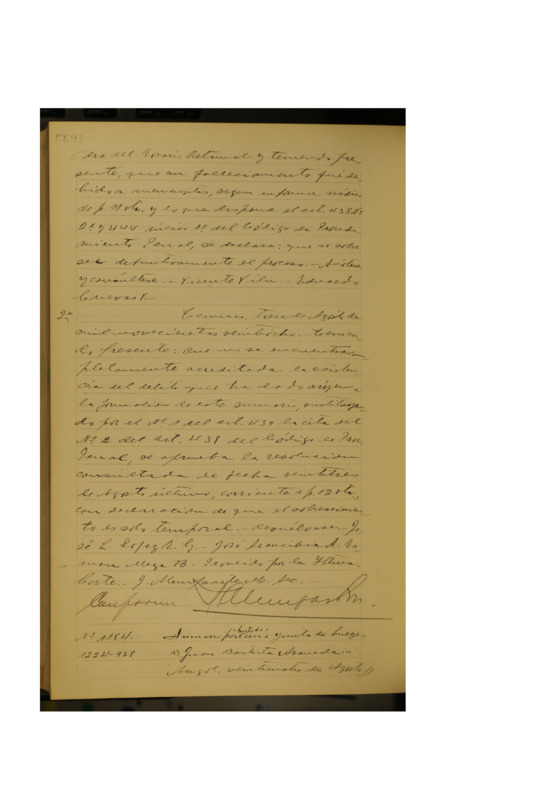 dro del Rosario Retamal y teniendo pre-
sente, que su fallecimiento fué de-
bido a meningitis, segun informe médico
de p. vta. y lo que dispone el art. 438 Nº
2º y 444 inciso 1º del Código de Procedi-
miento Penal, se declara: que se sobre-
see definitivamente el proceso.- Anótese
y consúltese.- Vicente Vila.- Eduardo
Cuevas V.-
2ª Temuco, trece de Agosto de
mil novecientos veintiocho.- Tenien-
do presente: Que no se encuentra com-
pletamente acreditada la existen-
cia del delito que ha dado orígen a
la formacion de este sumario,
do por el Nº 1 del art. 439 la cita del
Nº 2 del art. 438 del Código de Proc.
Penal, se aprueba la resolucion
consultada de fecha veintitres
de Agosto último, corriente a p. 12 vta,
con declaracion de que el sobreseimien-
to es solo temporal.- Devuélvase.- Jo-
sé L. López U. G.- José Arancibia A. Ra-
mon Meza B. Proveido por la Iltma.
Corte.- J. Sec.-
Conforme
Nº 1184. Sumario por hurto
1224-928 a Juan Bautista Araneda.-
Angol, veinticuatro de Agosto